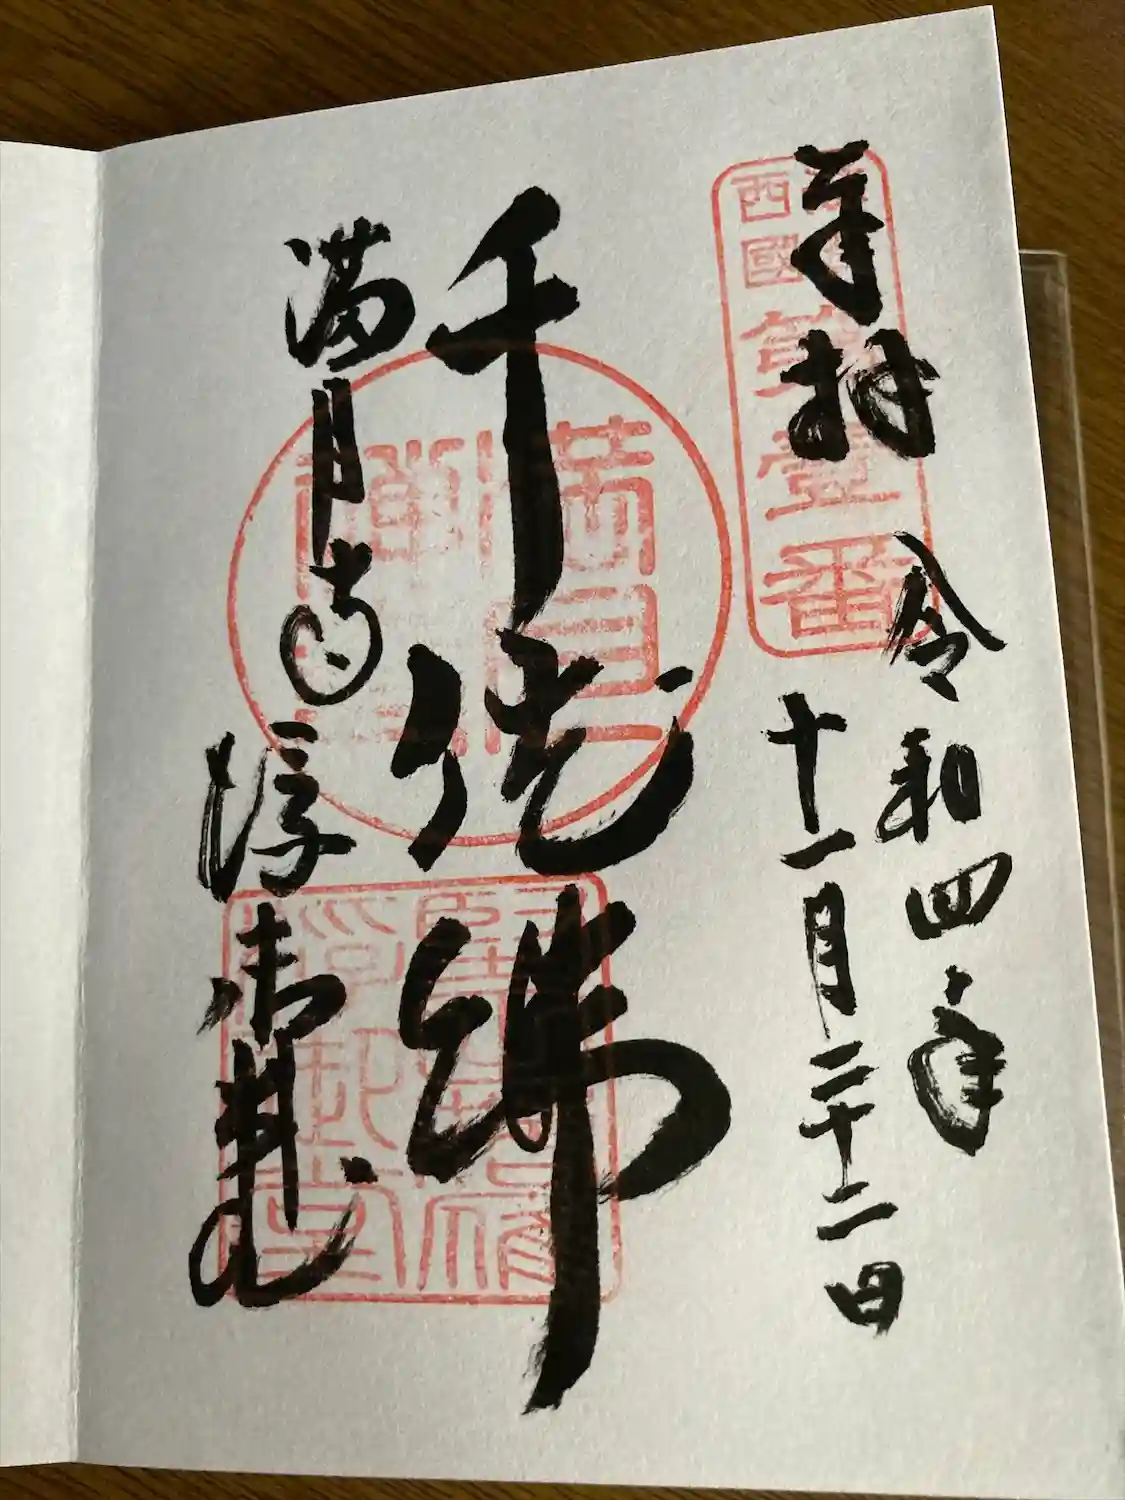 奉拝
西國
第壹番
令和四年
十一月二十二日
千体佛
満月寺
浮御堂